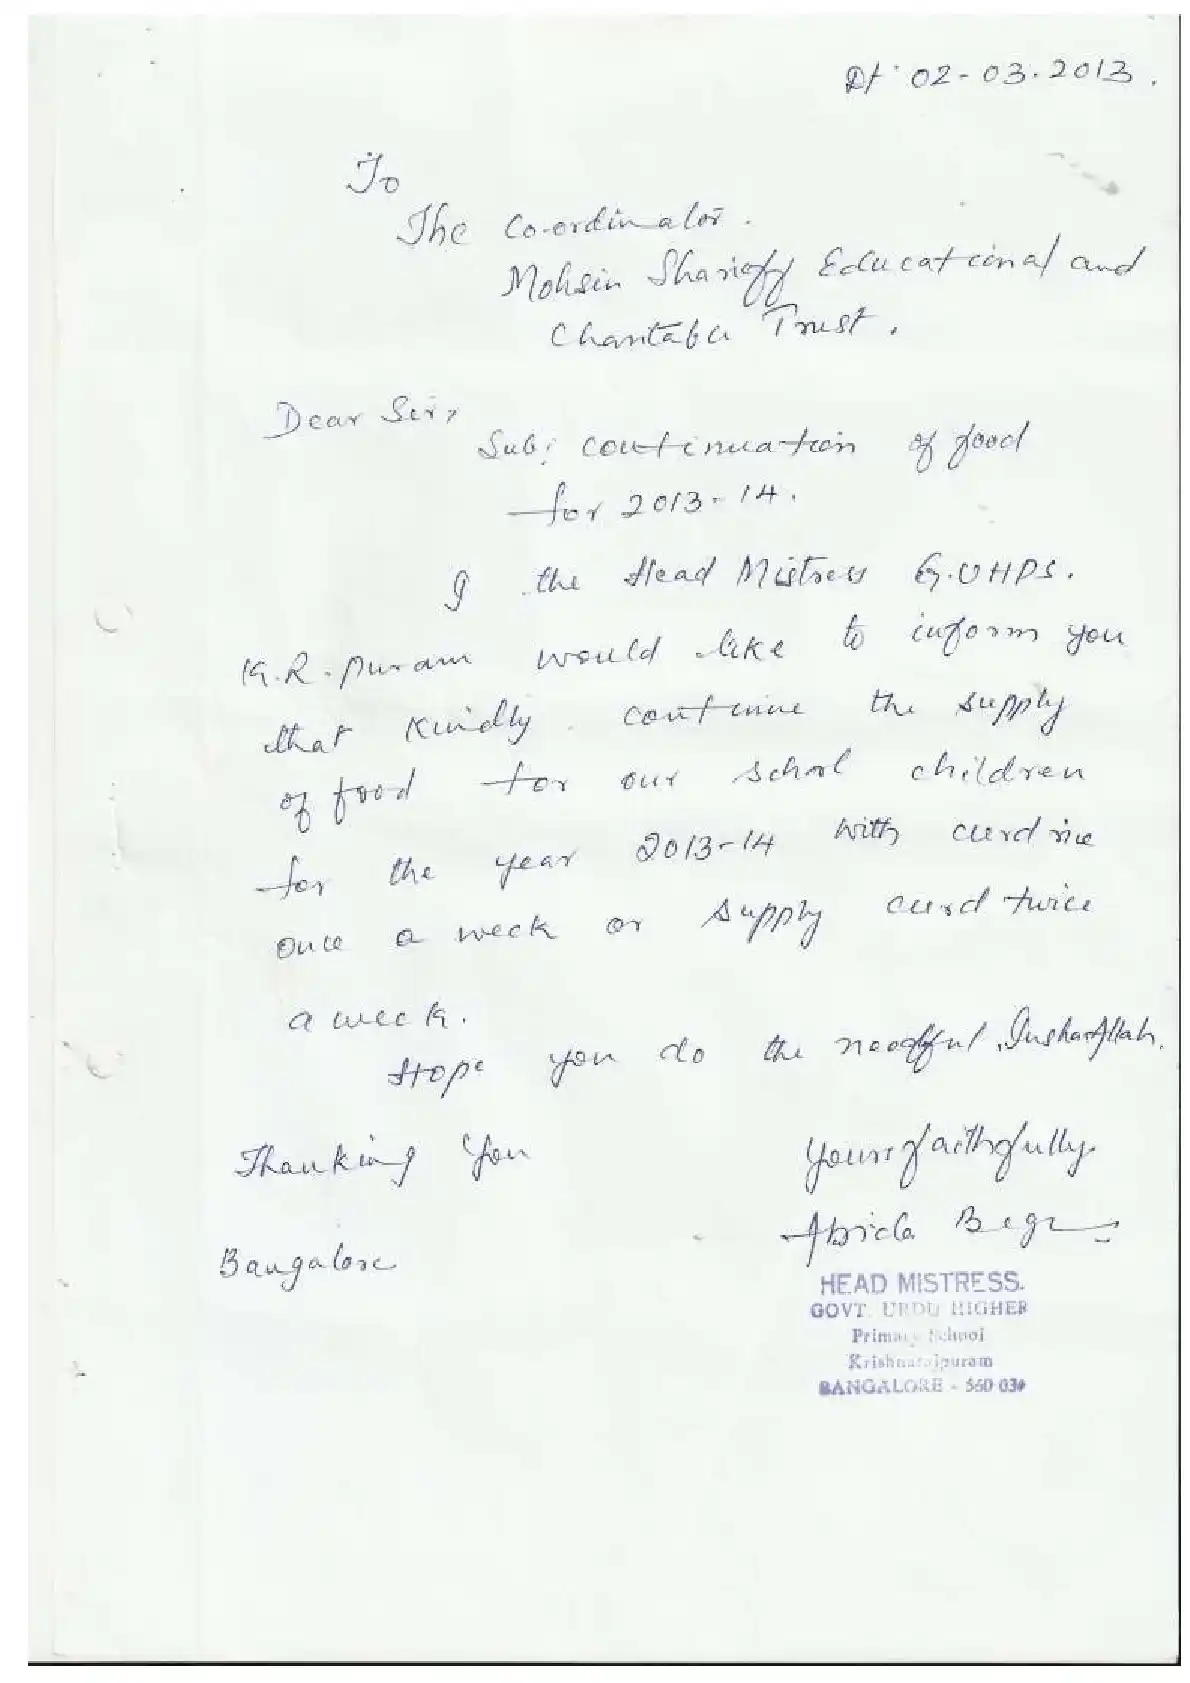 Dt: 02-03-2013.
To
The Co-ordinator.
Mohsin Sharieff Educational and
Charitable Trust.
Dear Sir,
Sub: Continuation of food
for 2013-14.
I the Head Mistress G.UHPS.
K.R. puram would like to inform you
that kindly continue the supply
of food for our school children
for the year 2013-14 with curd rice
once a week or supply curd twice
a week.
Hope you do the needful, InshaAllah.
Thanking You
Yours faithfully
Bangalore
HEAD MISTRESS.
GOVT. URDU HIGHER
Primary School
Krishnarajpuram
BANGALORE - 560